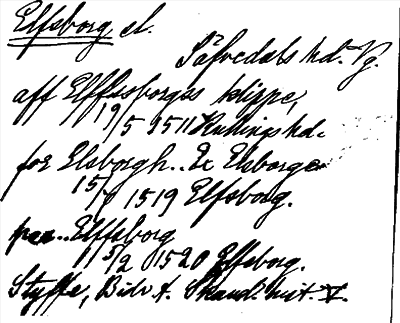 Elfsborg sl.
Säfvedals hd. Vg.
aff Elffusborges klippe,
19/5 1511 Rullingshd.
for Elsborgh.. Ex Elsborge
15/7 1519 Elfsborg.
paa.. Elffsborg
15/2 1520 Elfsborg.
Styffe, Bidr t. Skand. hist. V.